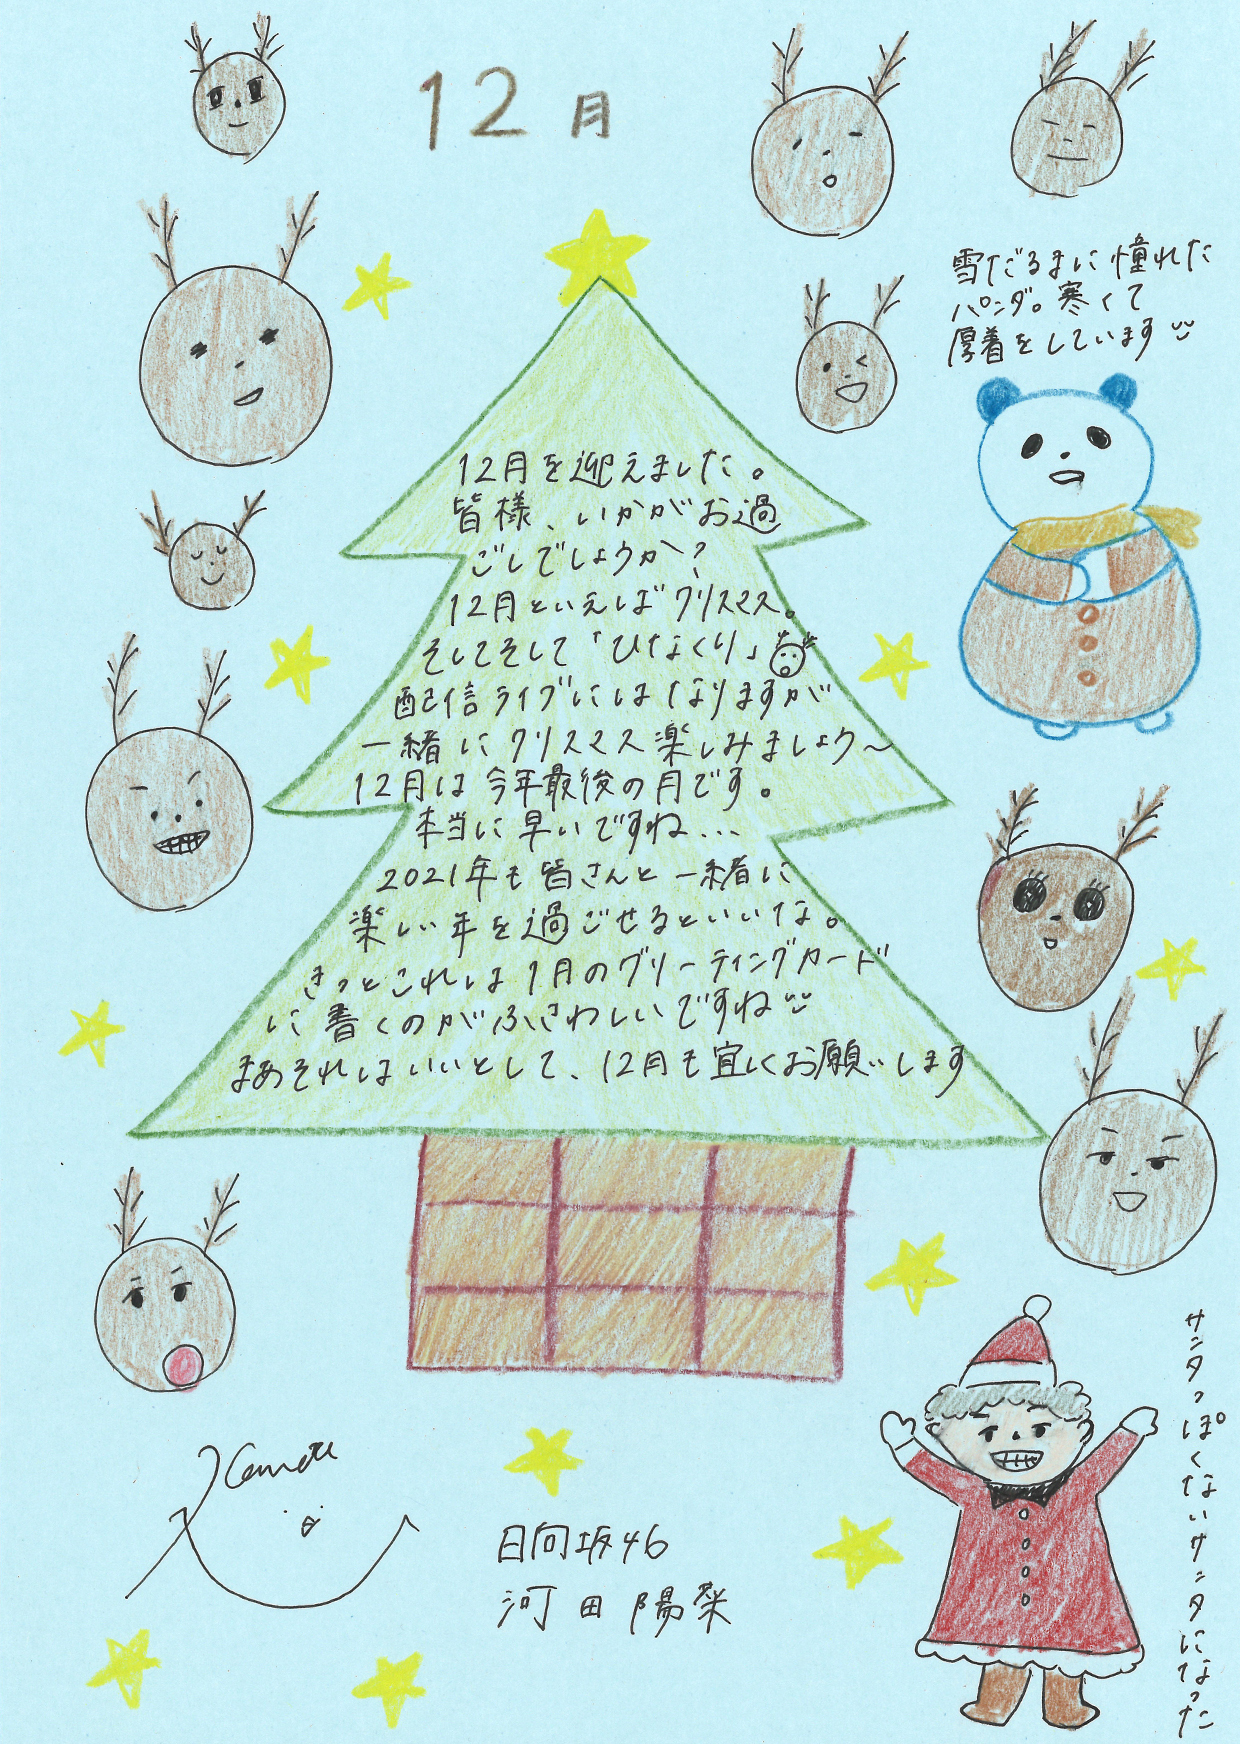 12月
雪だるまに憧れた
パンダ。寒くて
厚着をしています
12月を迎えました。
皆様、いかがお過
ごしでしょうか?
12月といえばクリスマス。
そしてそして「ひなくり」
配信ライブにはなりますが
一緒にクリスマス楽しみましょう〜
12月は今年最後の月です。
本当に早いですね...
2021年も皆さんと一緒に
楽しい年を過ごせるといいな。
きっとこれは1月のグリーティングカード
に書くのがふさわしいですね
まあそれはいいとして、12月も宜しくお願いします
サンタっぽくないサンタになった
日向坂46
河田陽菜